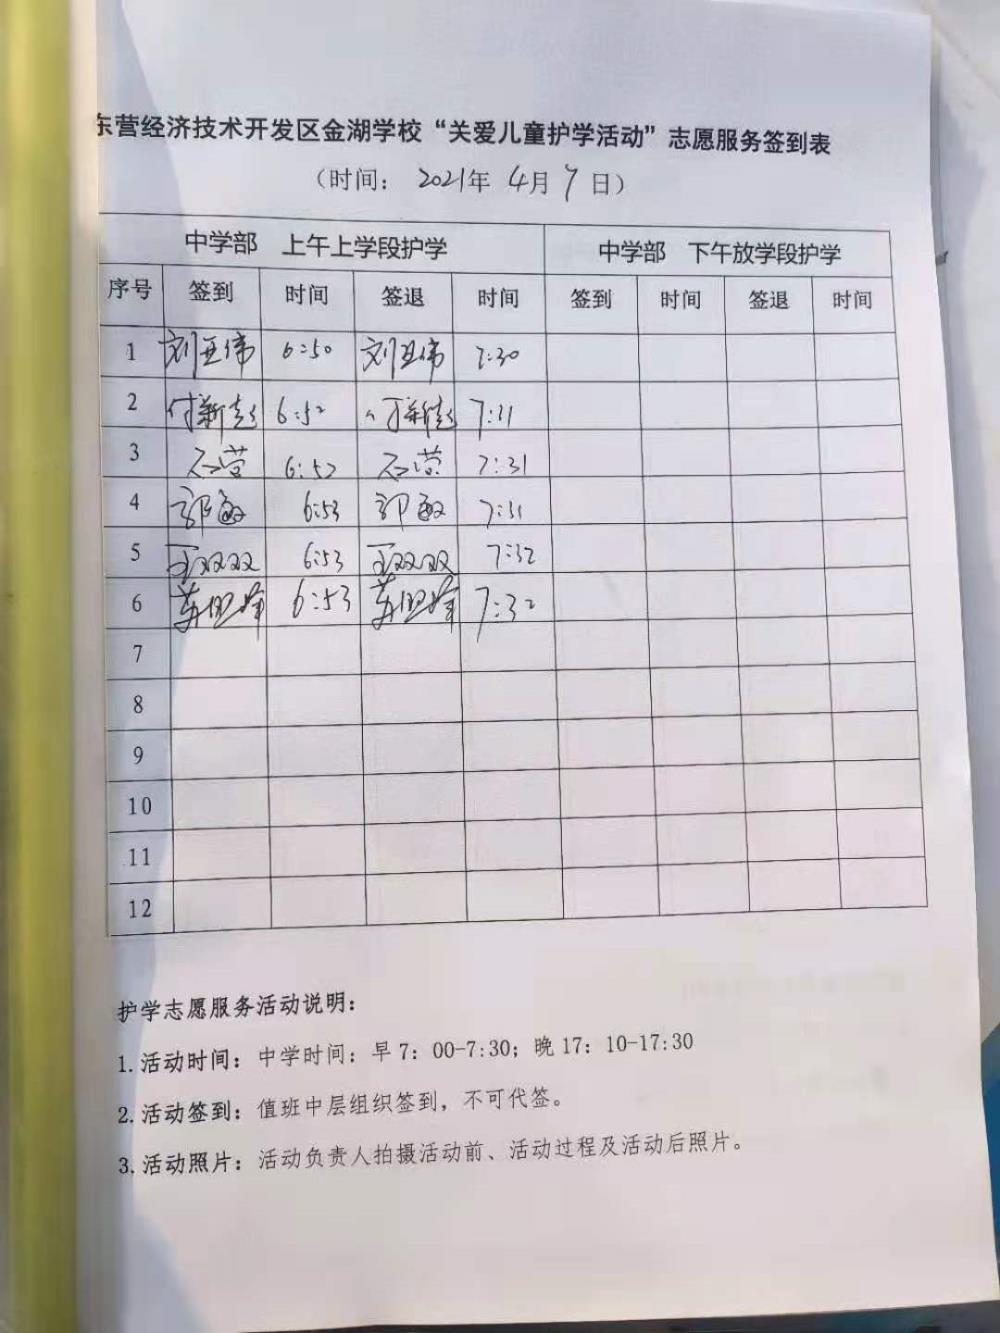 东营经济技术开发区金湖学校“关爱儿童护学活动”志愿服务签到表
（时间： 2021年 4月 7日）
中学部 上午上学段护学 中学部 下午放学段护学
序号 签到 时间 签退 时间 签到 时间 签退 时间
1 刘亚伟 6:50 刘亚伟 7:30
2 付新 6:52 付新 7:31
3 6:52 7:31
4 郭敏 6:53 郭敏 7:31
5 王双双 6:53 王双双 7:32
6 6:53 7:32
7
8
9
10
11
12
护学志愿服务活动说明：
1.活动时间：中学时间：早7：00-7:30；晚17：10-17:30
2.活动签到：值班中层组织签到，不可代签。
3.活动照片：活动负责人拍摄活动前、活动过程及活动后照片。